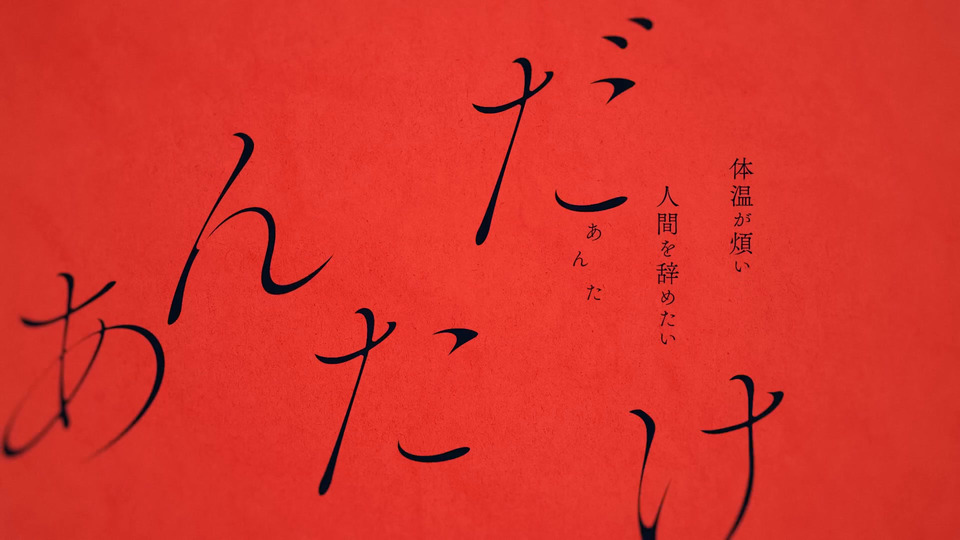 体温が煩い
人間を辞めたい
あんた
あんた
だけ